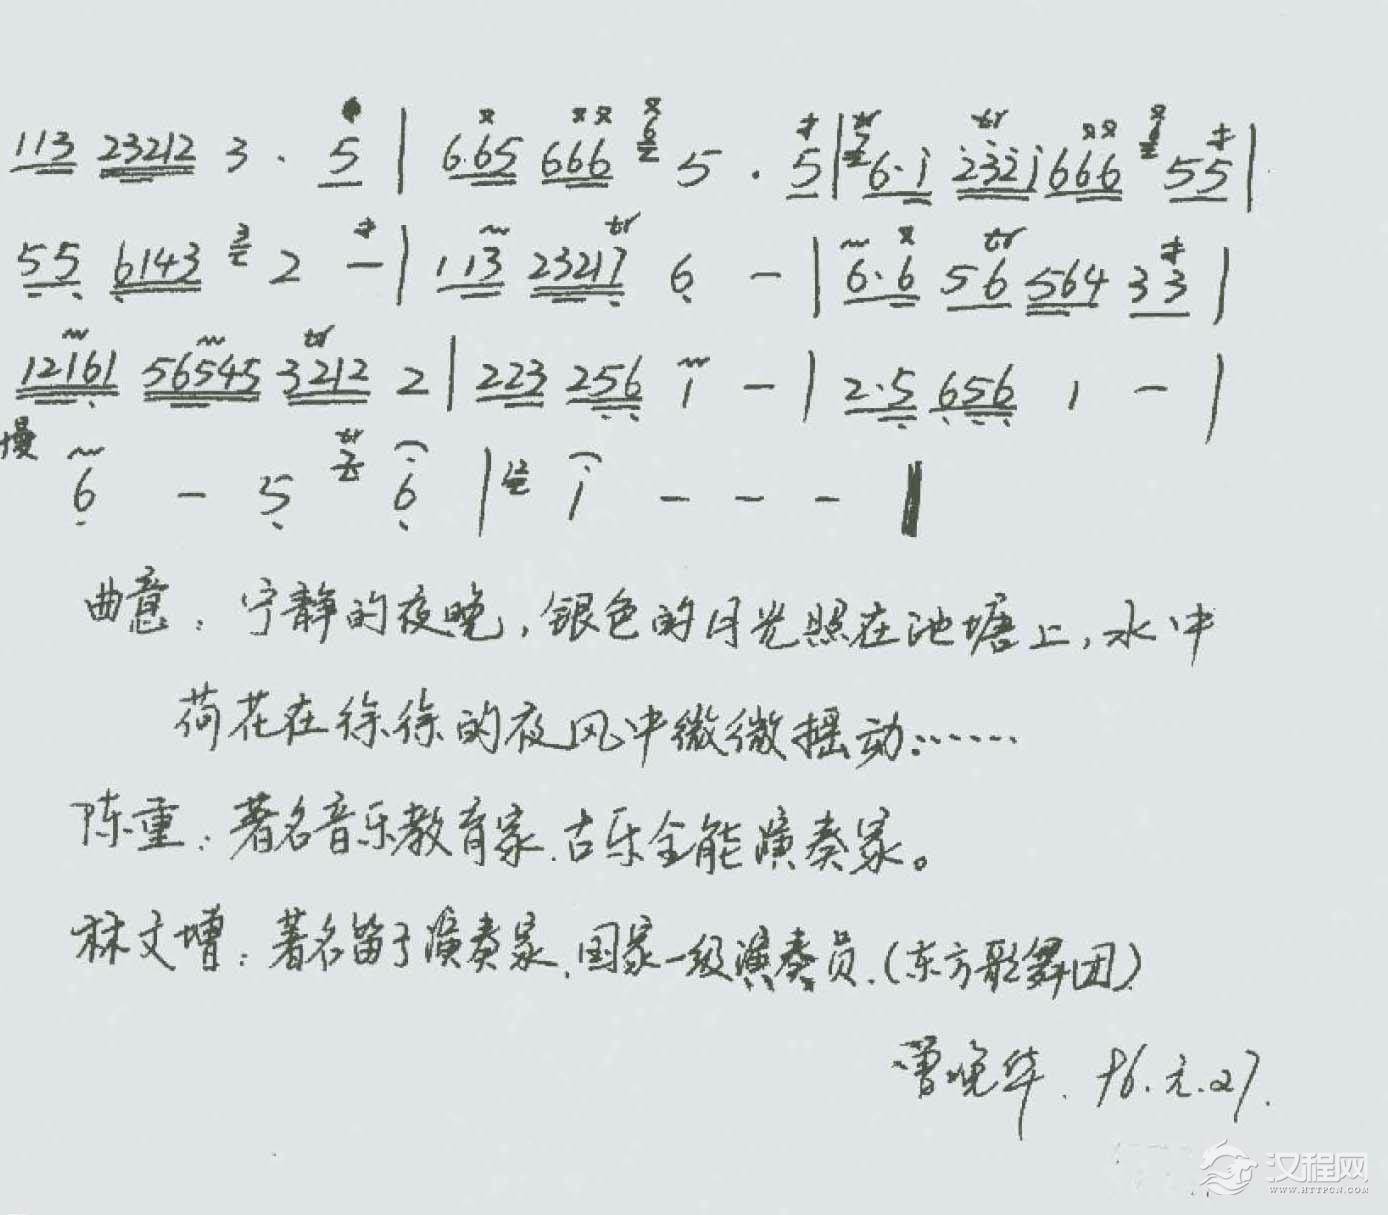 113 23212 3 · 5 | 6·65 666 6 5 · 5 | 7 6·i 2321 666 6 55 |
55 6143 3 2 - | 113 23217 6 - | 6·6 56 564 33 |
12161 56545 3212 2 | 223 256 1 - | 2·5 656 1 - |
慢 6 - 5 7 6 | 12 1 - - - ‖
曲意：宁静的夜晚，银色的月光照在池塘上，水中
荷花在徐徐的夜风中微微摇动……
陈重：著名音乐教育家、古乐全能演奏家。
林文增：著名笛子演奏家、国家一级演奏员.（东方歌舞团）
曾晚华．96.元.27.
汉程网
WWW.HTTPCN.COM